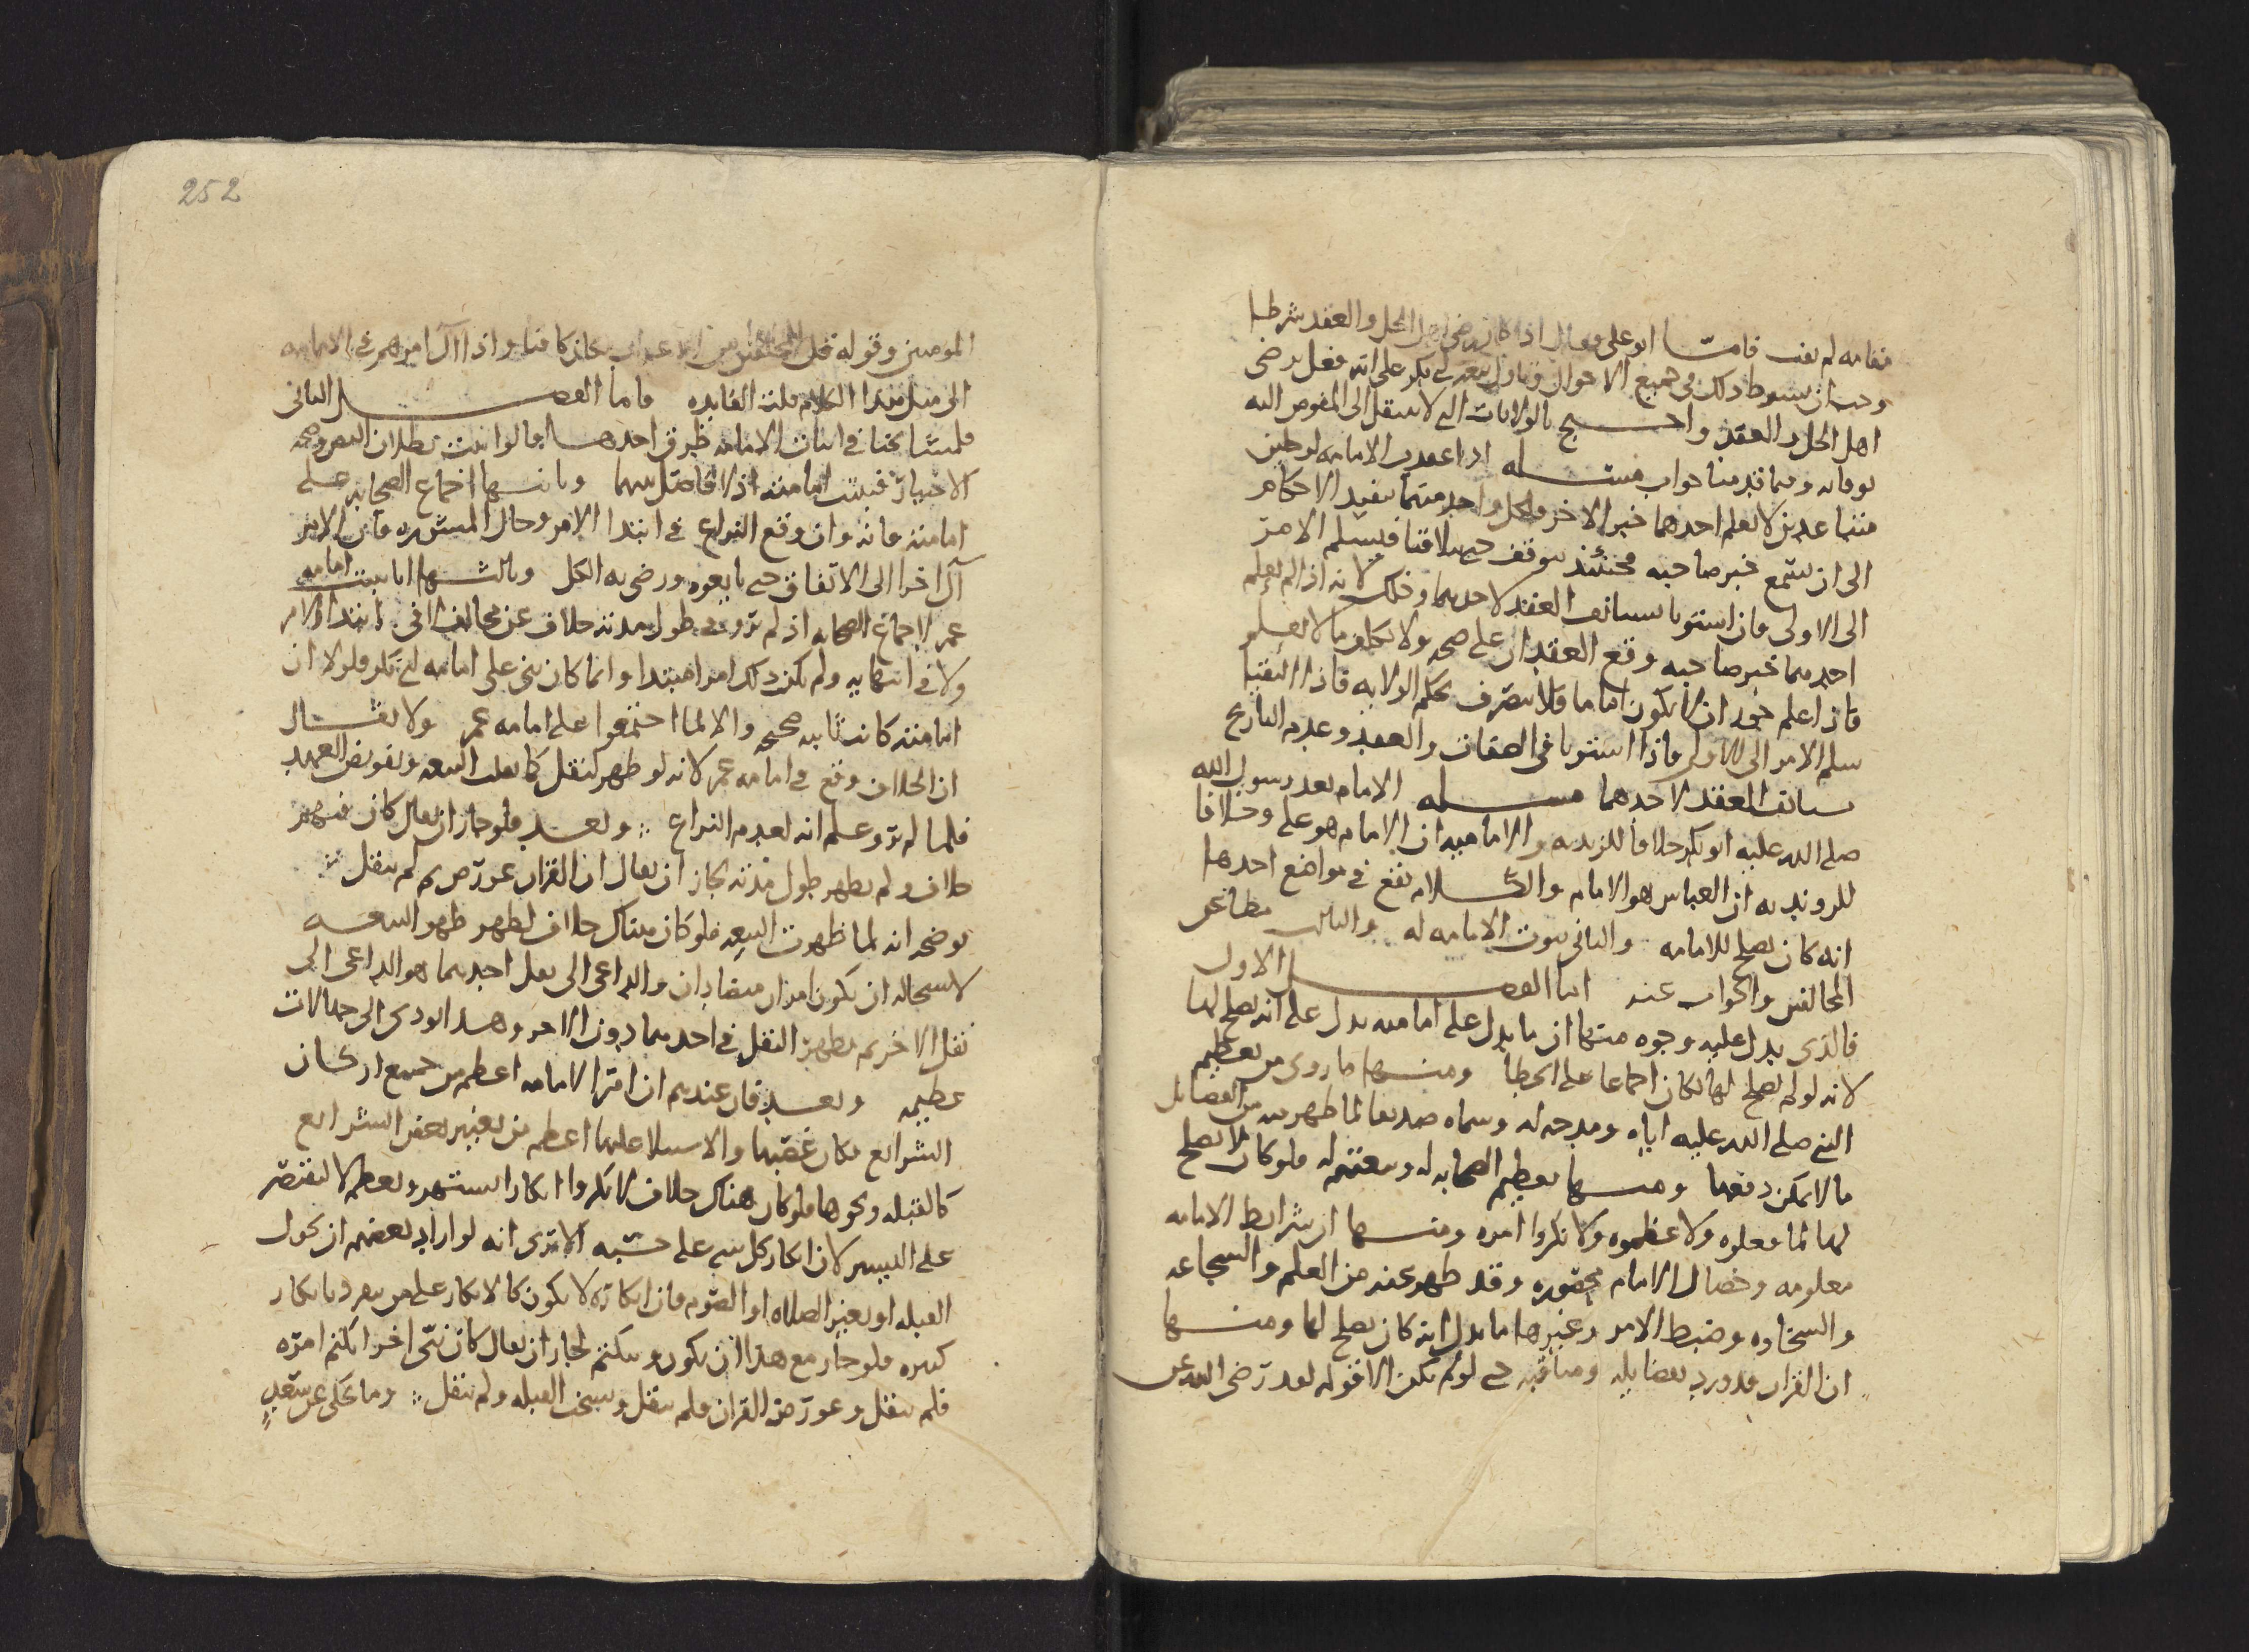 مقامه لم يف فامّا ابو على فقال اذا كان رضى اهل الحل والعقد شرطا
وجب ان يشرط ذلك فى جميع الاحوال وتاول بيعه ابى بكر على انه فعل برضى
اهل الحل والعقد واحتج بالولايات التى لا تنتقل الى المفوض اليه
بوفاته وفيما قدمنا جواب مسئله اذا عقدت الامامه لرجلين
متباعدين لا يعلم احدهما خبر الاخر فكل واحد منهما ينفذ الاحكام
الى ان يسمع خبر صاحبه فحينئذ يتوقف حتى يتلاقيا فيسلم الامر
الى الاولى فان استويا يستانف العقد لاحدهما وذلك لانه اذا لم يعلم
احدهما خبر صاحبه وقع العقدان على صحه ولا يكلف ما لا يعلم
فاذا علم جوز ان لا يكون اماما فلا يتصرف بحكم الولايه فاذا التقيا
سلم الامر الى الاولى فاذا استويا فى الصفات والعقد وعدم التاريخ
يستانف العقد لاحدهما مسئله الامام بعد رسول الله
صلى الله عليه ابو بكر خلافا للزيديه والاماميه ان الامام هو على وخلافا
للرونديه ان العباس هو الامام والكلام يقع فى مواضع احدها
انه كان يصلح للامامه والثانى ثبوت الامامه له والثالث مطاعن
المخالفين والجواب عنه اما الفصل الاول
فالذى يدل عليه وجوه منها ان ما يدل على امامته يدل على انه يصلح لها
لانه لو لم يصلح لها لكان اجماعا على الخطا ومنها ما روى من تعظيم
النبى صلى الله عليه اياه ومدحه له وسماه صديقا لما ظهر منه من الفضائل
ما لا يمكن دفعها ومنها تعظيم الصحابه له وبيعتهم له فلو كان لا يصلح
لها لما فعلوه ولا عظموه ولانكروا امره ومنها ان شرايط الامامه
معلومه وخصال الامام محصوره وقد ظهر عنه من العلم والشجاعه
والسخاوه وضبط الامر وغيرها ما يدل انه كان يصلح لها ومنها
ان القران قد ورد بفضايله ومناقبه حتى لو لم يكن الا قوله لقد رضى الله عن
252
المومنين وقوله قل للمخلفين من الاعراب لكان كافيا واذا آل امرهم فى الامامه
الى مثل هذا الكلام قلت الفايده واما الفصل الثانى
فلمشايخنا فى اثبات الامامه طرق احدها قالوا ثبت بطلان النص وصحه
الاختيار فثبتت امامته اذ لا فاصل بينهما وثانيها اجماع الصحابه على
امامته فانه وان وقع النزاع فى ابتدا الامر وحال المشوره فان الامر
آل اخرا الى الاتفاق حتى بايعوه ورضى به الكل وثالثها انا بينا امامه
عمر لاجماع الصحابه اذ لم يرو فى طول مدته خلاف عن مخالف لا فى ابتدا الامر
ولا فى انتهايه ولم يكن ذلك امرا مبتدا وانما كان يبنى على امامه ابى بكر فلولا ان
امامته كانت ثابته صحيحه والا لما اجتمعوا على امامه عمر ولا يقال
ان الخلاف وقع فى امامه عمر لانه لو ظهر لنقل كما نقلت البيعه وتفويض العهد
فلما لم يرو علم انه لعدم النزاع وبعد فلو جاز ان يقال كان فيهم
خلاف ولم يظهر طول مدته لجاز ان يقال ان القران عورض ثم لم ينقل
يوضحه انه لما ظهرت البيعه فلو كان هناك خلاف لظهر ظهور البيعه
لاستحاله ان يكون امران متضادان والداعى الى نقل احدهما هو الداعى الى
نقل الاخر ثم يظهر النقل فى احدهما دون الاخر وهذا يودى الى جهالات
عظيمه وبعد فان عندهم ان امر الامامه اعظم من جميع اركان
الشرائع فكان غصبها والاستيلا عليها اعظم من تغيير بعض الشرائع
كالقبله ونحوها فلو كان هناك خلاف لانكروا انكارا يشتهر ويعظم لا يقتصر
على اليسير لان انكار كل شى على حسبه الا ترى انه لو اراد بعضهم ان يحول
القبله او يغير الصلاه او الصوم فان انكاره لا يكون كالانكار على من ينفرد بانكار
كبيره فلو جاز مع هذا ان يكون وينكتم لجاز ان يقال كان نبى اخر انكتم امره
فلم ينقل وعورض القران فلم ينقل ونسخت القبله ولم تنقل وما حكى عن سعد